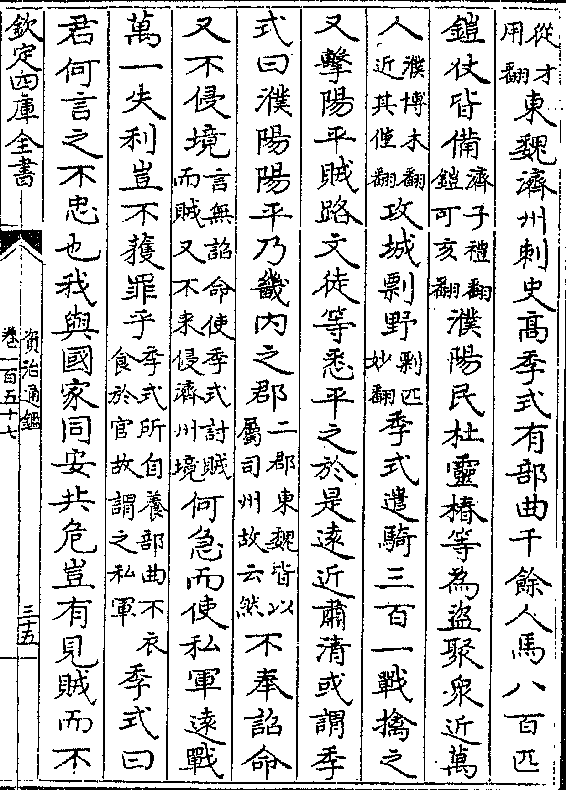 從才用翻東魏濟州刺史高季式有部曲千餘人馬八百匹
鎧仗皆備濟子禮翻鎧可亥翻濮陽民杜靈椿等為盜聚衆近萬
人濮博木翻近其僅翻攻城剽野剽匹妙翻季式遣騎三百一戰擒之
又擊陽平賊路文徒等悉平之於是遠近肅清或謂季
式曰濮陽陽平乃畿内之郡二郡東魏皆以屬司州故云然不奉詔命
又不侵境言無詔命使季式討賊而賊又不来侵濟州境何急而使私軍遠戰
萬一失利豈不獲罪乎季式所自養部曲不衣食於官故謂之私軍季式曰
君何言之不忠也我與國家同安共危豈有見賊而不
欽定四庫全書
資治通鑑
卷一百五十七
三十五